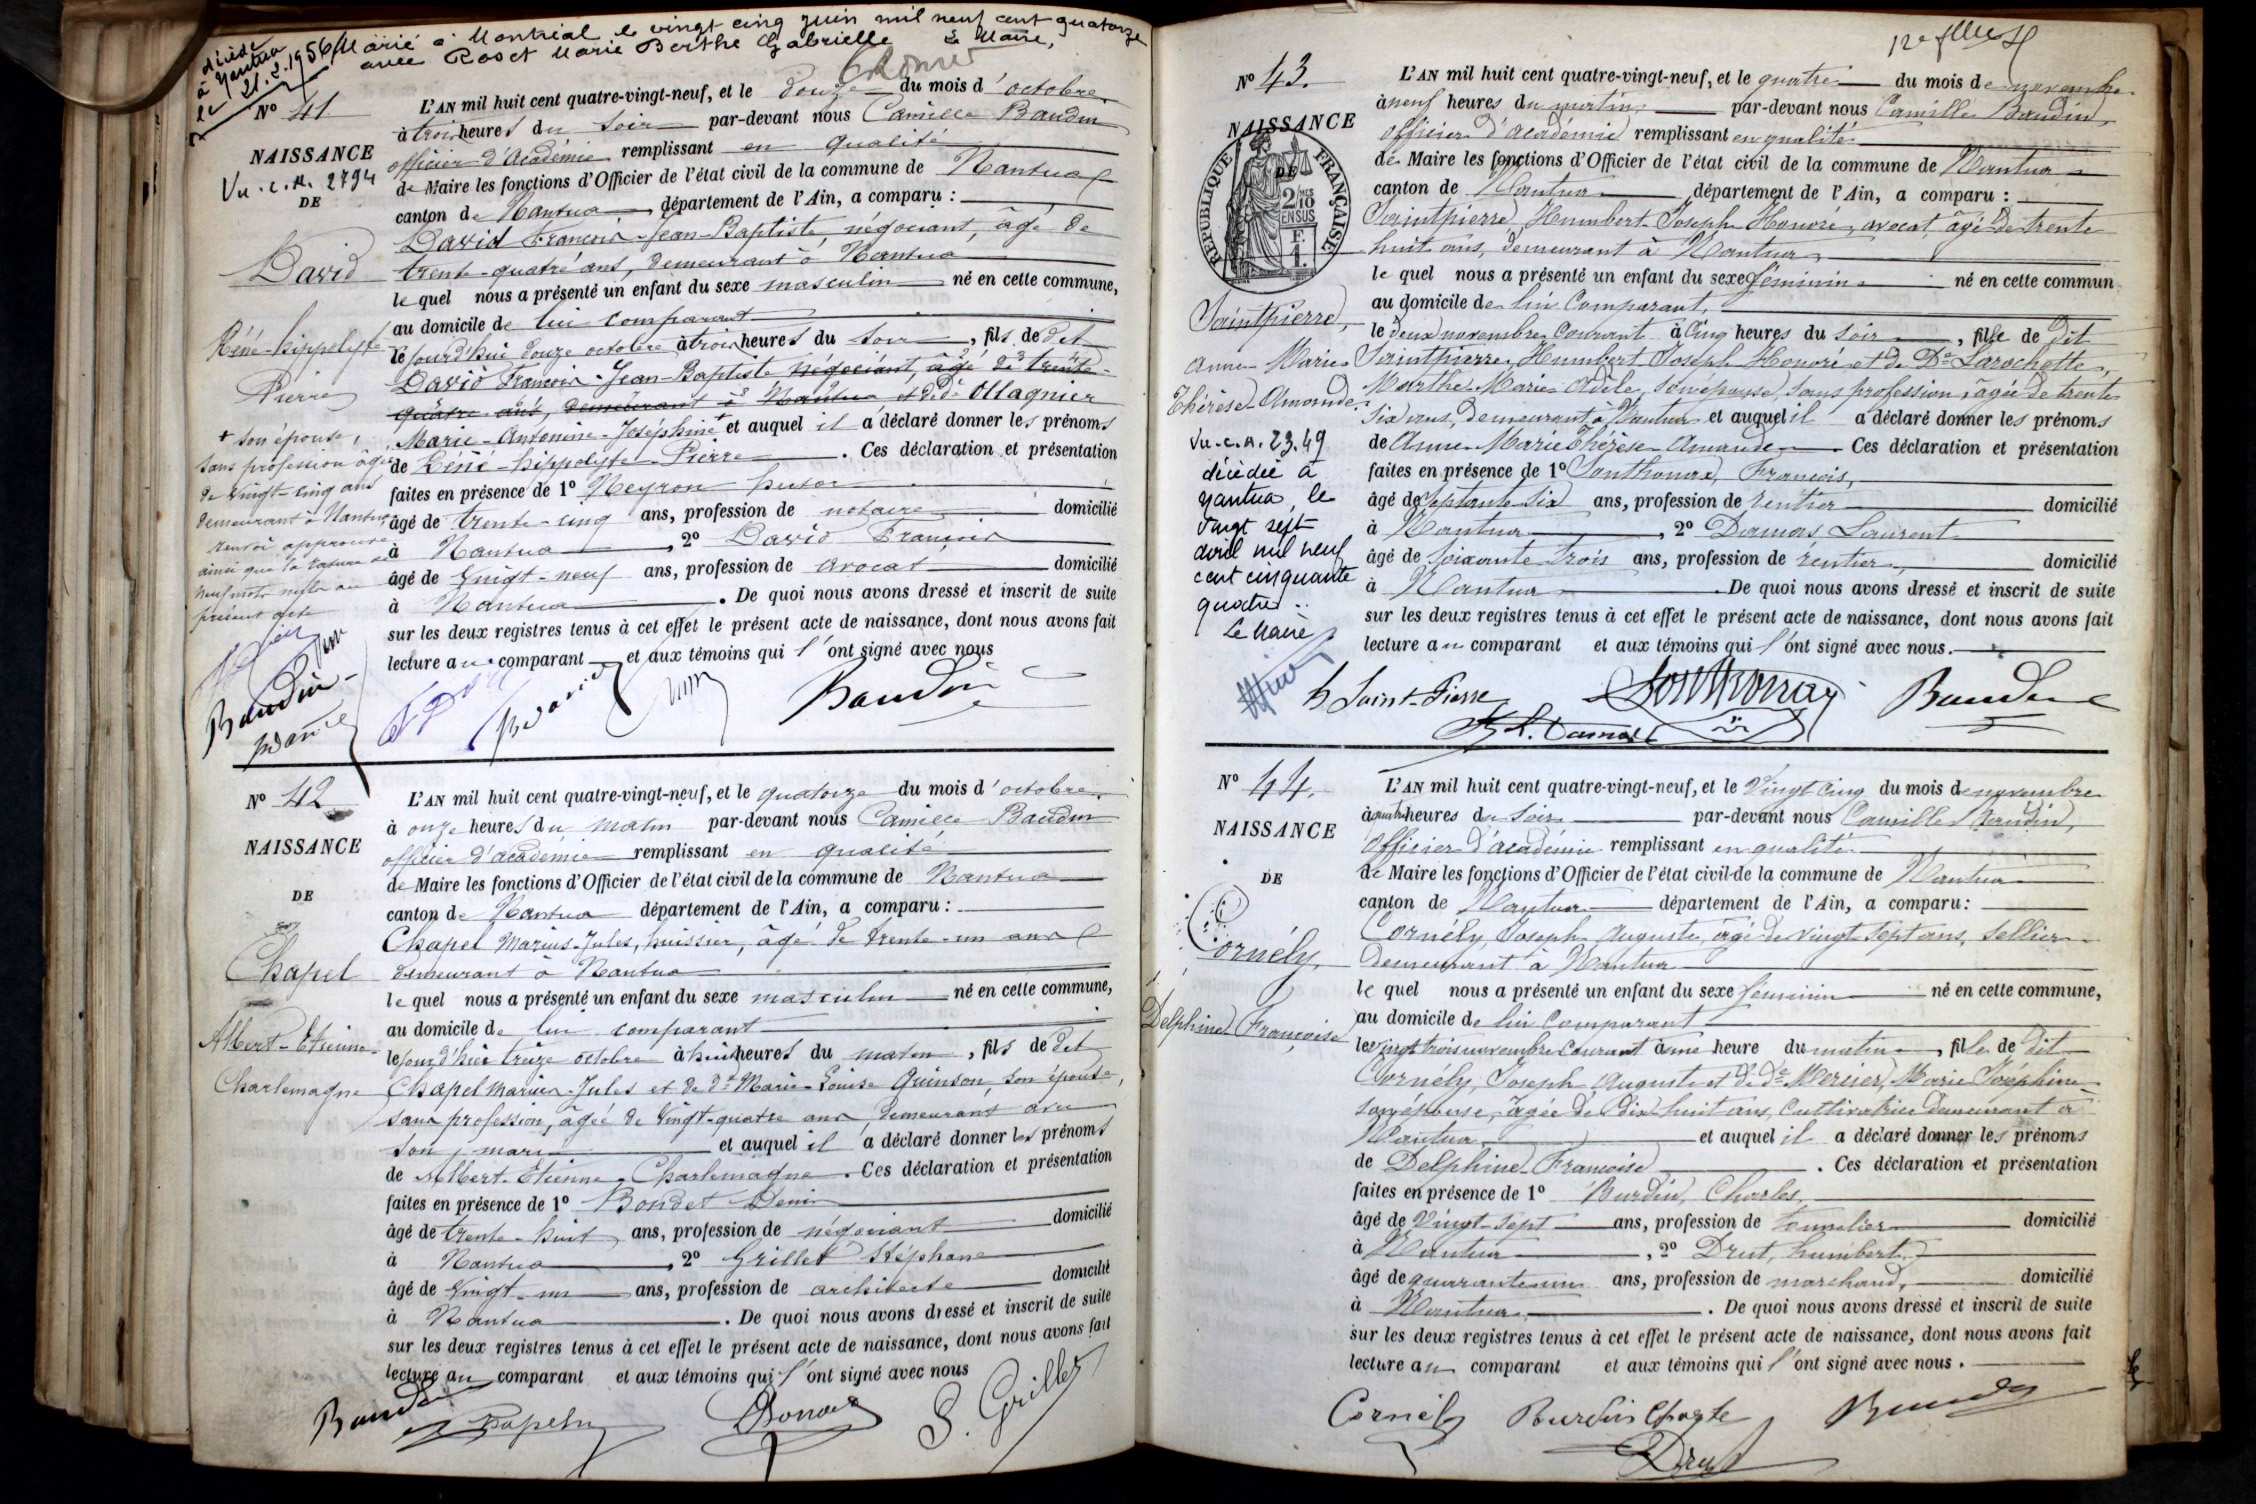 décédé
à Nantua
le 21.2.1956
Marié à Montréal le vingt cinq juin mil neuf cent quatorze
avec Rosset Marie Berthe Gabrielle Le Maire,
N° 41
NAISSANCE
Vu. c. n. 2794
DE
David
Réné-hippolyte
Pierre
+ son épouse,
sans profession âgée
de vingt-cinq ans
demeurant à Nantua
renvoi approuvé
ainsi que la rature de
neuf mots nuls au
présent acte
Baudin
L'AN mil huit cent quatre-vingt-neuf, et le douze du mois d'octobre
à trois heures du soir par-devant nous Camille Baudin
officier d'Académie remplissant en qualité
de Maire les fonctions d'Officier de l'état civil de la commune de Nantua
canton de Nantua, département de l'Ain, a comparu :
David François-Jean-Baptiste, négociant, âgé de
trente-quatre ans, demeurant à Nantua
le quel nous a présenté un enfant du sexe masculin né en cette commune,
au domicile de lui comparant
le jourd'hui douze octobre à trois heures du soir, fils de dit
David François-Jean-Baptiste négociant, âgé de trente-
quatre ans, demeurant à Nantua et de de Ollagnier
Marie-Antonine-Joséphine + et auquel il a déclaré donner les prénoms
de Réné-hippolyte-Pierre. Ces déclaration et présentation
faites en présence de 1° Neyron
âgé de trente-cinq ans, profession de notaire domicilié
à Nantua, 2° David François
âgé de vingt-neuf ans, profession de avocat domicilié
à Nantua. De quoi nous avons dressé et inscrit de suite
sur les deux registres tenus à cet effet le présent acte de naissance, dont nous avons fait
lecture au comparant et aux témoins qui l'ont signé avec nous
Baudin
N° 42
NAISSANCE
DE
Chapel
Albert-Etienne-
Charlemagne
L'AN mil huit cent quatre-vingt-neuf, et le quatorze du mois d'octobre
à onze heures du matin par-devant nous Camille Baudin
officier d'académie remplissant en qualité
de Maire les fonctions d'Officier de l'état civil de la commune de Nantua
canton de Nantua département de l'Ain, a comparu :
Chapel Marius-Jules, huissier, âgé de trente-un ans
demeurant à Nantua
le quel nous a présenté un enfant du sexe masculin né en cette commune,
au domicile de lui comparant
le jour d'hier treize octobre à huit heures du matin, fils de dit
Chapel Marius-Jules et de de Marie-Louise Quinson, son épouse,
sans profession, âgée de vingt-quatre ans, demeurant avec
son mari et auquel il a déclaré donner les prénoms
de Albert-Etienne-Charlemagne. Ces déclaration et présentation
faites en présence de 1° Bondet Denis
âgé de trente-huit ans, profession de négociant domicilié
à Nantua, 2° Grillet Stéphane
âgé de vingt-un ans, profession de architecte domicilié
à Nantua. De quoi nous avons dressé et inscrit de suite
sur les deux registres tenus à cet effet le présent acte de naissance, dont nous avons fait
lecture au comparant et aux témoins qui l'ont signé avec nous
Baudin
S. Grillet
N° 43.
NAISSANCE
DE
RÉPUBLIQUE FRANÇAISE
2/10
EN SUS
Saintpierre,
Anne-Marie
Thérèse-Amande
Vu. c. n. 23.49
décédée à
Nantua, le
vingt sept
avril mil neuf
cent cinquante
quatre.
Le Maire
L'AN mil huit cent quatre-vingt-neuf, et le quatre du mois de novembre
à neuf heures du matin par-devant nous Camille Baudin,
officier d'académie remplissant en qualité
de Maire les fonctions d'Officier de l'état civil de la commune de Nantua
canton de Nantua département de l'Ain, a comparu :
Saintpierre, Humbert Joseph Honoré, avocat, âgé de trente
huit ans, demeurant à Nantua
le quel nous a présenté un enfant du sexe féminin né en cette commun
au domicile de lui comparant,
le deux novembre courant à cinq heures du soir, fille de dit
Saintpierre, Humbert Joseph Honoré et de De Larochette,
Marthe Marie Adèle, son épouse, sans profession, âgée de trente
six ans, demeurant à Nantua et auquel il a déclaré donner les prénoms
de Anne-Marie Thérèse-Amande. Ces déclaration et présentation
faites en présence de 1° Sonthonax, François,
âgé de septante six ans, profession de rentier domicilié
à Nantua, 2° Damas, Laurent
âgé de soixante trois ans, profession de rentier, domicilié
à Nantua. De quoi nous avons dressé et inscrit de suite
sur les deux registres tenus à cet effet le présent acte de naissance, dont nous avons fait
lecture au comparant et aux témoins qui l'ont signé avec nous.
h Saint-Pierre Sonthonax Baudin
L. Damas
N° 44.
NAISSANCE
DE
Cornély,
Delphine Françoise
L'AN mil huit cent quatre-vingt-neuf, et le vingt cinq du mois de novembre
à quatre heures du soir par-devant nous Camille Baudin,
officier d'académie remplissant en qualité
de Maire les fonctions d'Officier de l'état civil de la commune de Nantua
canton de Nantua département de l'Ain, a comparu :
Cornély, Joseph Auguste, âgé de vingt sept ans, sellier
demeurant à Nantua
le quel nous a présenté un enfant du sexe féminin né en cette commune,
au domicile de lui comparant
le vingt trois novembre courant à une heure du matin, fille de dit
Cornély, Joseph Auguste et de de Mercier, Marie Joséphine
son épouse, âgée de dix huit ans, cultivatrice demeurant à
Nantua et auquel il a déclaré donner les prénoms
de Delphine Françoise. Ces déclaration et présentation
faites en présence de 1° Burdin, Charles,
âgé de vingt-sept ans, profession de tonnelier domicilié
à Nantua, 2° Drut, humbert,
âgé de quarante un ans, profession de marchand, domicilié
à Nantua. De quoi nous avons dressé et inscrit de suite
sur les deux registres tenus à cet effet le présent acte de naissance, dont nous avons fait
lecture au comparant et aux témoins qui l'ont signé avec nous.
Cornély Burdin Baudin
Drut